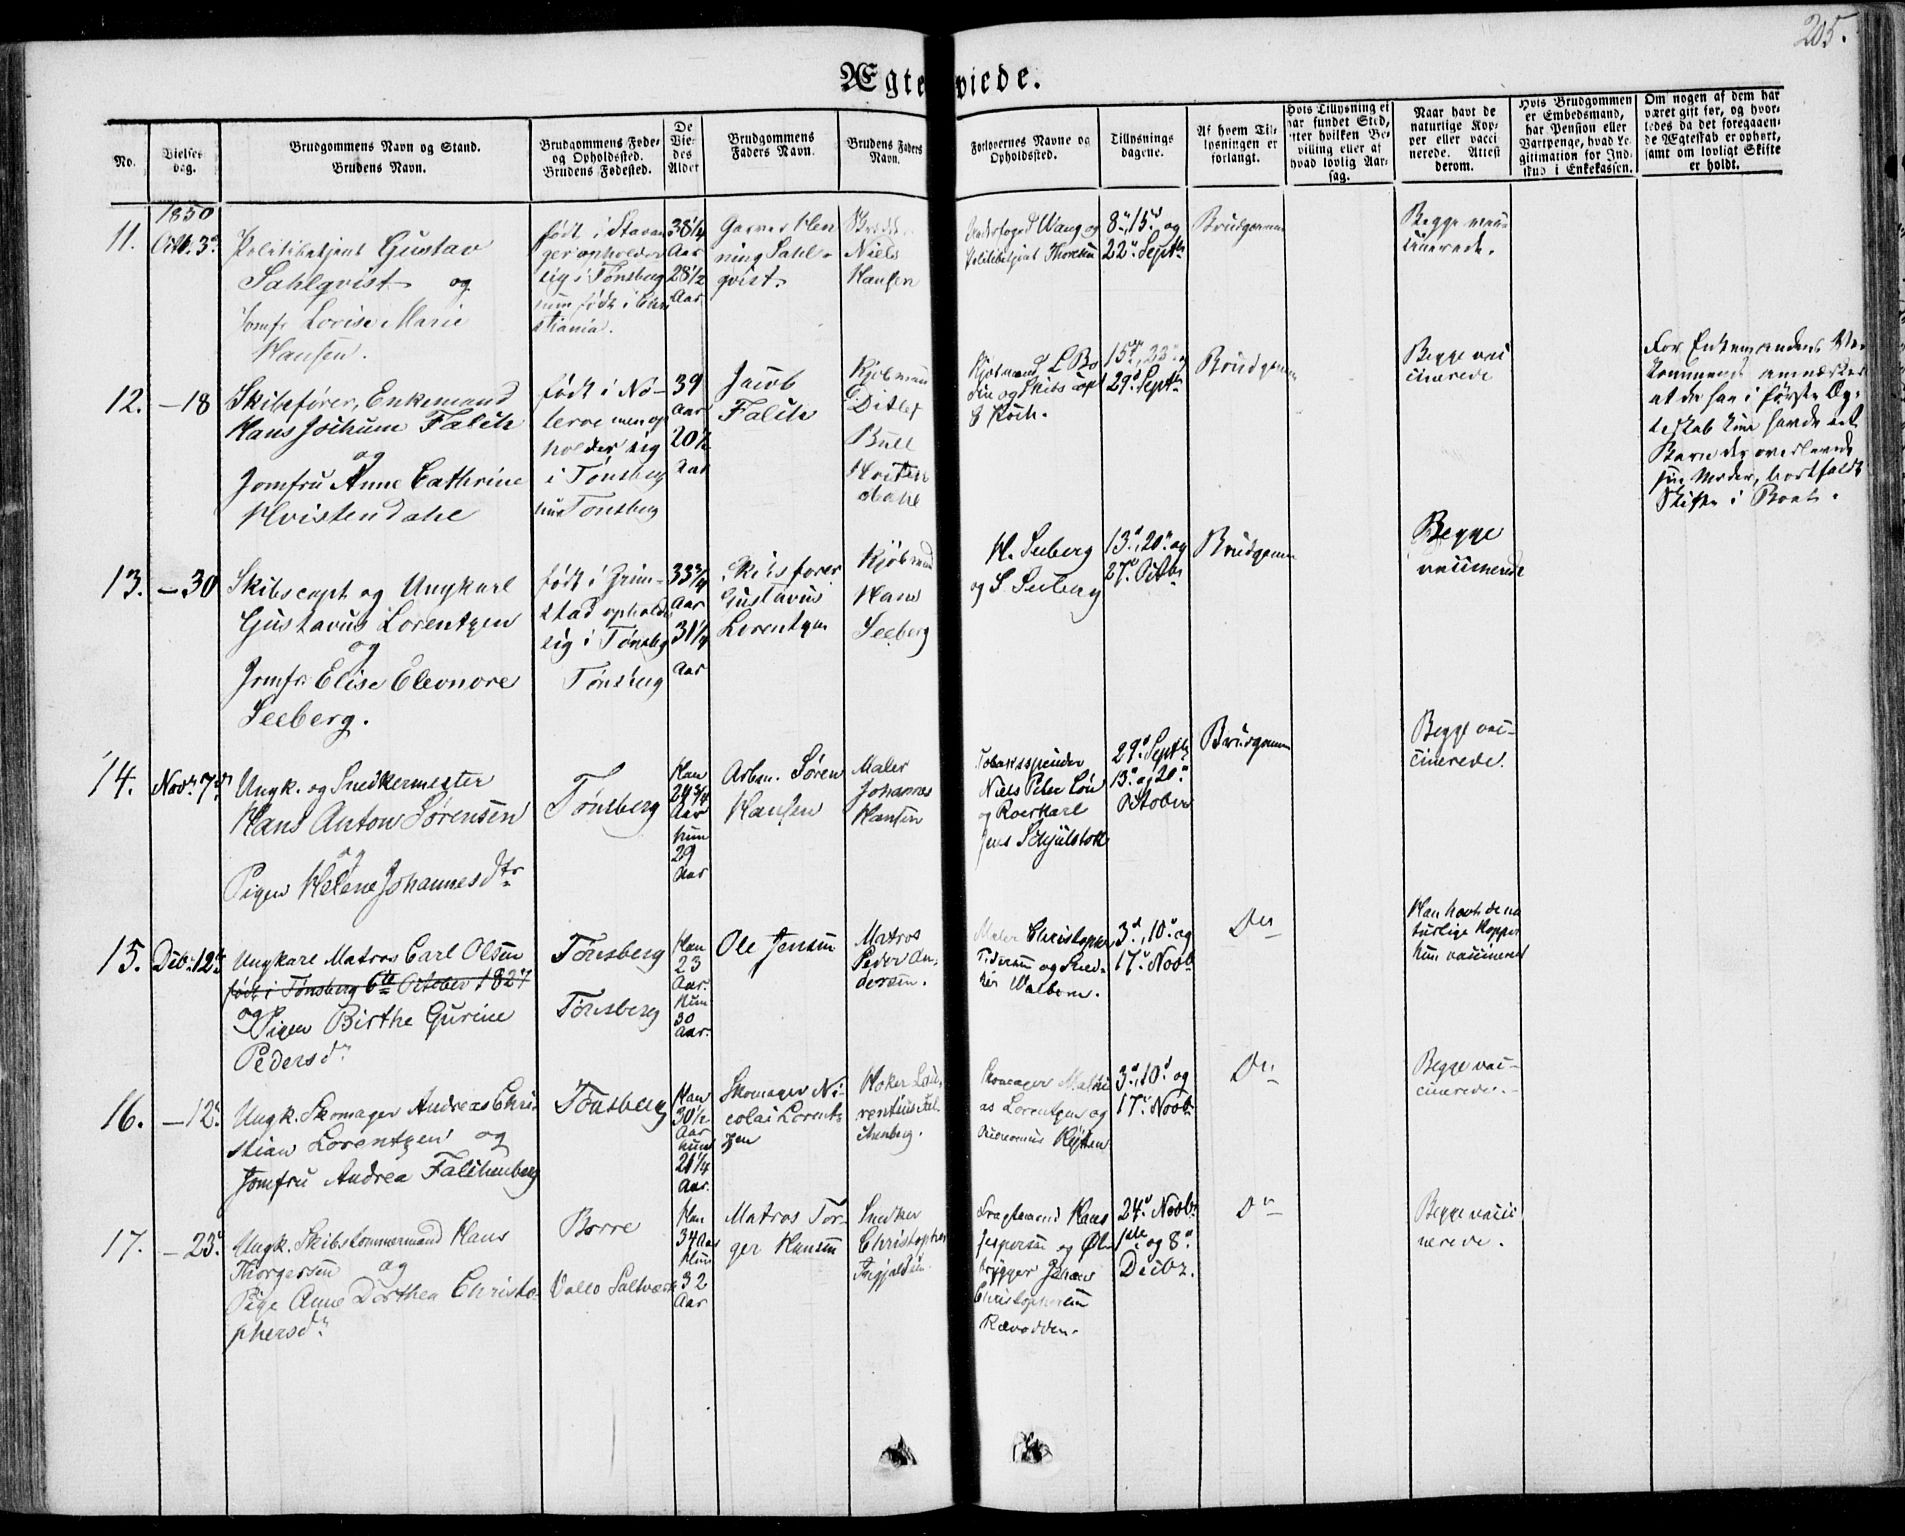 205.
Ægteviede.
No.
Vielses dag.
Brudgommens Navn og Stand.
Brudens Navn.
Brudgommens Føde- og Opholdssted.
Brudens Fødested.
De Viedes Alder
Brudgommens Faders Navn.
Brudens Faders Navn.
Forlovernes Navne og Opholdssted.
Tillysnings dagene.
Af hvem Tillysningen er forlangt.
Hvis Tillysning ei har fundet Sted, efter hvilken Bevilling eller af hvad lovlig Aarsag.
Naar havt de naturlige Kopper eller vaccinerede. Attest derom.
Hvis Brudgommen er Embedsmand, har Pension eller Vartpenge, hvad Legitimation for Indskud i Enkekassen.
Om nogen af dem har været gift før, og hvorledes da det foregaaende Ægteskab er ophørt, samt om lovligt Skifte er holdt.
1850
11.
Octb. 3d
Politibetjent Gustav
Sahlqvist og
Jomfr Lovise Marie
Hansen.
født i Stavan
ger opholder
sig i Tønsberg
hun født i Chri
stiania.
38 1/4
Aar
28 1/2
Aar
Garver Hen
ning Sahl-
qvist.
Niels
Hansen
Wang og
Politibetjent Thoresen
8d, 15d og
22d Septb
Brudgommen
Begge vac-
cinerede.
12.
-18
Skibsfører, Enkemand
Hans Jochum Falch
og
Jomfru Anne Cathrine
Hvistendahl
født i Nø-
terøe men op
holder sig
i Tønsberg
hun Tønsberg
39
Aar
20 1/2
Aar
Jacob
Falch
Kjøbmand
Ditlef
Bull
Hvisten
dahl
Kjøbmand L Bo
din og Skibscapt
G Koch.
15de, 22d og
29d Septb
Brudgommen
Begge vac
cinerede
For Enkemandens Ved-
kommende anmærkes
at da han i første Æg-
teskab kun havde et
Barn der overlevede
sin Moder, bortfaldt
Skifte i Boet.
13.
-30
Skibscapt og Ungkarl
Gustavus Lorentzen
og
Jomfr Elise Eleonore
Seeberg.
født i Grim-
stad opholder
sig i Tønsberg
Tønsberg
33 3/4
Aar
31 1/4
Aar
Skibsfører
Gustavus
Lorentzen
Kjøbmand
Hans
Seeberg
H. Seeberg
og S Seeberg
13d, 20d og
27d Octbr
Brudgommen
Begge
vaccinerede
14.
Novbr 7d
Ungk. og Snedkermester
Hans Anton Sørensen
og
Pigen Helene Johannesdtr
Tønsberg
Han
24 3/4
Aar
hun
29
Aar
Arbm. Søren
Hansen
Maler
Johannes
Hansen
Tobaksspinder
Niels Peter
og Roerkarl
Jens
29d Septb
13d og 20d
October
Brudgommen
Begge vac-
cinerede.
15.
Decb. 12te
Ungkarl Matros Carl Olsen
født i Tønsberg 6te October 1827
og
Pigen Birthe Gurine
Pedersdr
Tønsberg
Tønsberg
Han
23
Aar.
Hun
30
Aar.
Ole Jensen
Matros
Peder An-
dersen.
Maler Christopher
Pedersen og Sned-
ker Walborn.
3d, 10d og
17d Novb
Do
Han havt de na
turlige Kopper
hun vaccineret
16.
-12d
Ungk. Skomager Andreas Chri
stian Lorentzen og
Jomfru Andrea Falchenberg
Tønsberg
Han
30 1/2
Aar
hun
21 1/4
Aar.
Skomager Ni-
colai Lorent-
zen
Høker Lau-
rentius Fal-
chenberg.
Skomager Mathi
as Lorentzen og
3d, 10d og
17d Novb
Do
Begge vac-
cinerede.
17.
-23d
Ungk. Skibstømmermand Hans
Thorgersen og
Pige Anne Dorthea Christo-
phersdr
Borre
Valløe Saltværk
Han
34 Aar
Hun
32
Aar
Matros Tor-
ger Hansen
Snedker
Christopher
Ingjaldsen.
Hans
Jespersen og Øl-
brygger Johan
Christophersen
Rævodden.
24d Novbr
1ste og 8d
Decbr.
Do
Begge vacci
nerede.